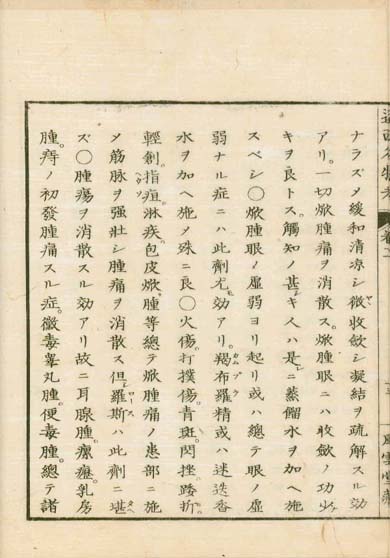 ナラズメ緩和清凉シ微收斂シ凝結ヲ疏解スル効
アリ。一切焮腫痛ヲ消散ス。焮腫眼ニハ收斂ノ功少
キヲ良トス。觸知ノ甚キ人ハ是ニ蒸餾水ヲ加ヘ施
スベシ〇焮腫眼ノ虚弱ヨリ起リ或ハ總テ眼ノ虚
弱ナル症ニハ此劑尤効アリ。羯布羅精或ハ迷迭香
水ヲ加ヘ施メ殊ニ良〇火傷。打撲傷。青斑。閃挫。踒折。
輕創。指痘。淋疾。包皮焮腫等總テ焮腫痛ノ患部ニ施
メ筋脉ヲ强壯シ腫痛ヲ消散ス但羅斯ハ此劑ニ堪
ズ〇腫瘍ヲ消散スル効アリ故ニ耳腺腫。瘰癧。乳房
腫。痔ノ初發腫痛スル症。黴毒睾丸腫。便毒腫。總テ諸